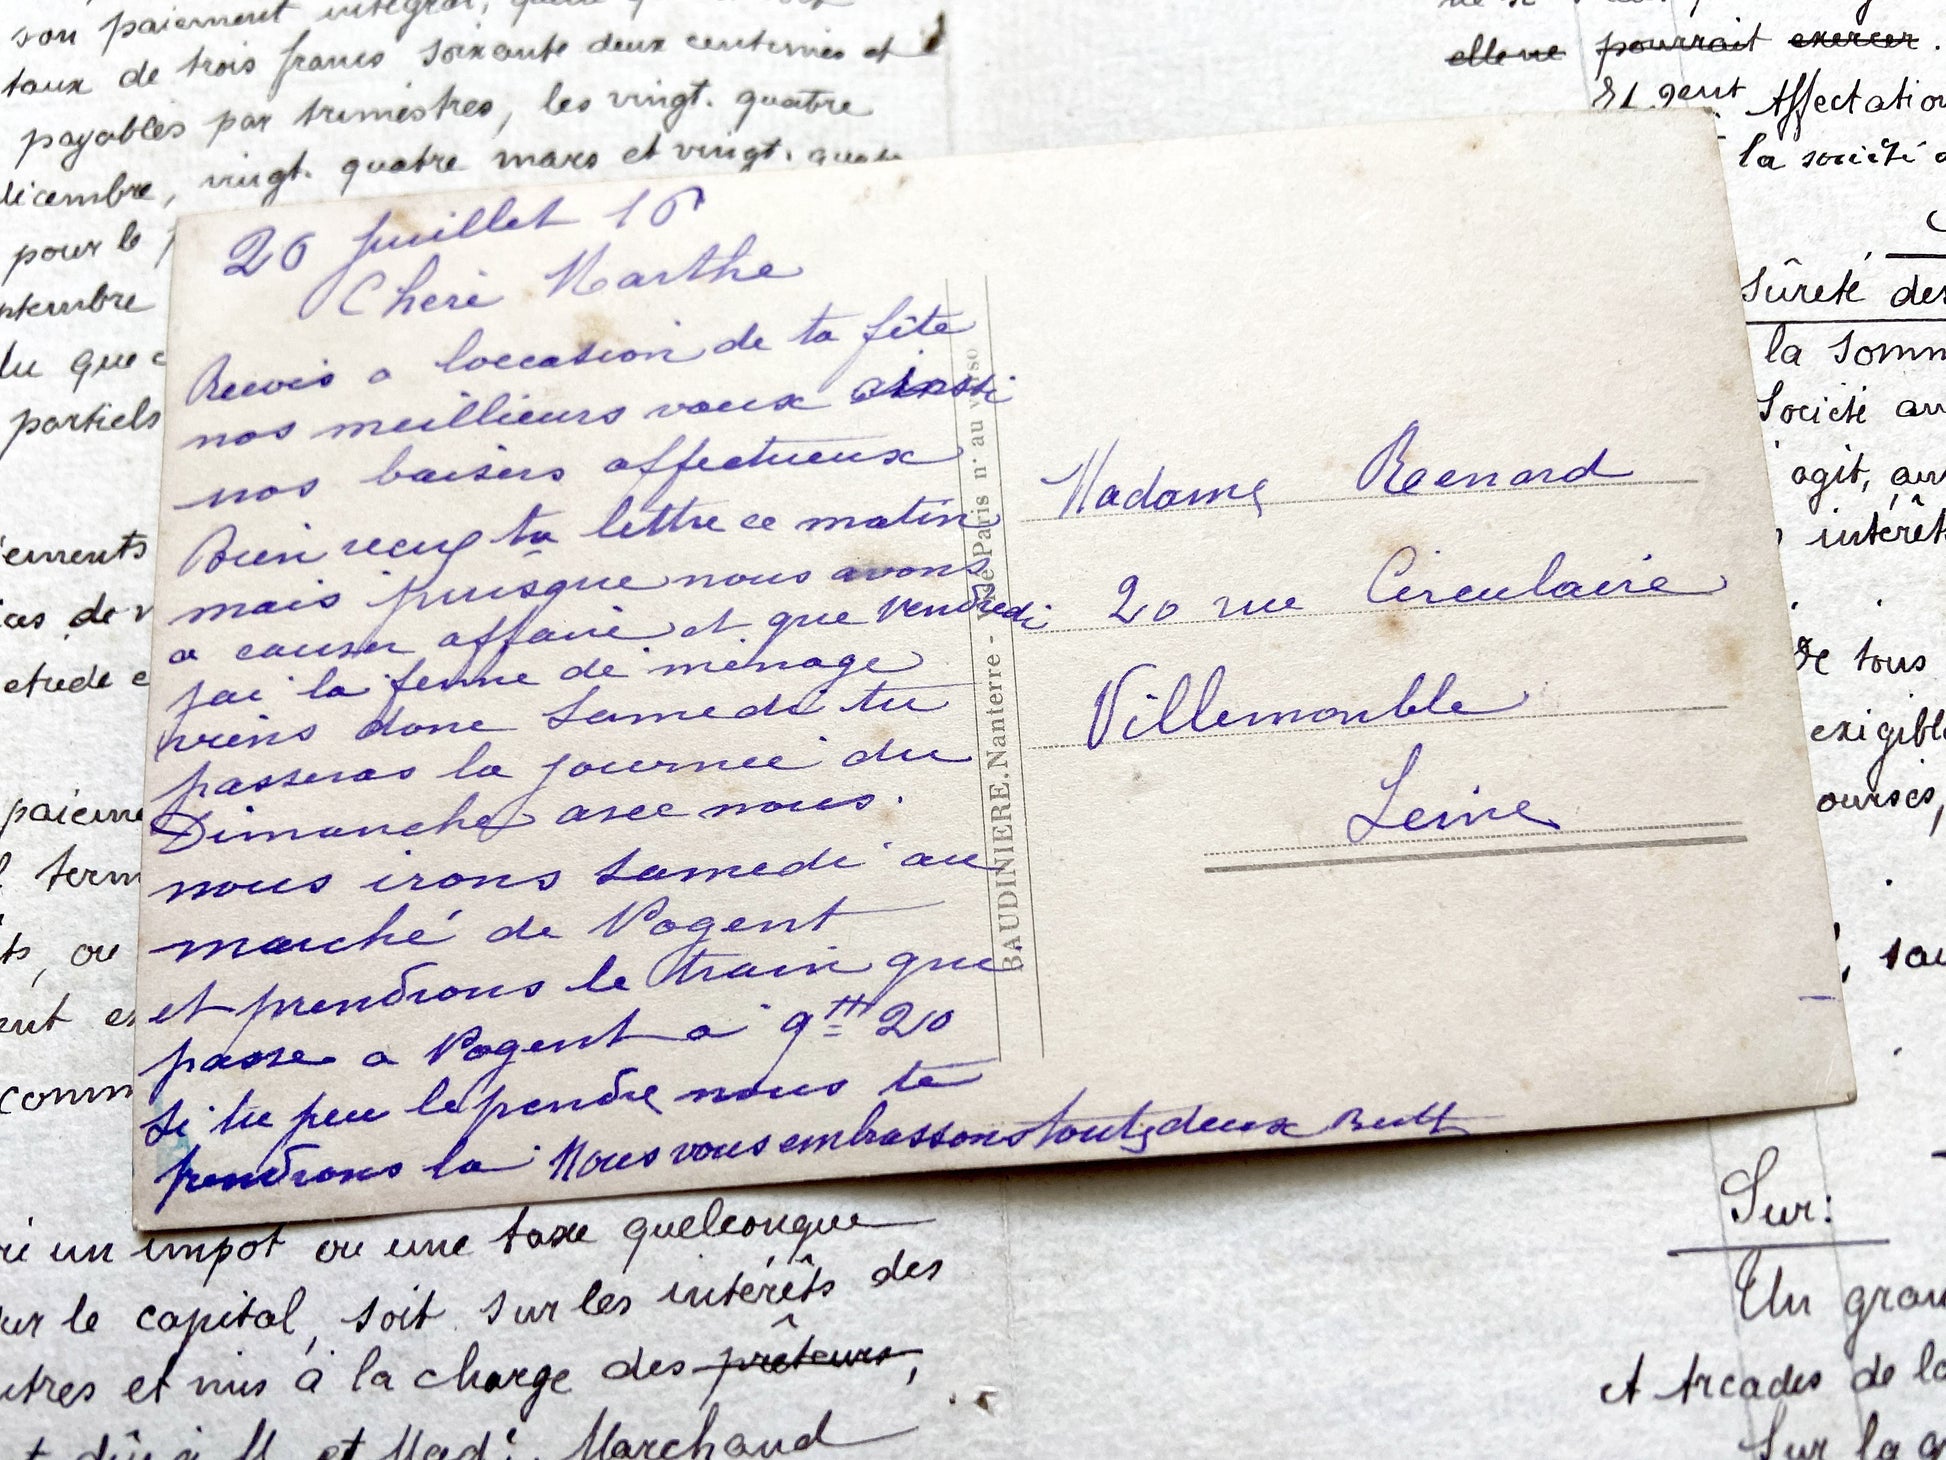 son paiement intégral,
taux de trois francs soixante deux centimes et
payables par trimestres, les vingt. quatre
décembre, vingt. quatre mars et vingt.
pour le
ptembre
du que
partiels
ements
cas de
etude
paieme
term
ts, ou
ent
comm
20 Juillet 16
Cheri Marthe
Recois a loccasion de ta fête
nos meillieurs vœux ainsi
nos baisers affectueux
Bien recu ta lettre ce matin
mais puisque nous avons
a causer affaire et que vendredi
jai la femme de menage
viens donc Samedi tu
passeras la journeé du
Dimanche avec nous.
nous irons Samedi au
marché de Nogent
et prendrons le train que
passe a Nogent a 9 H 20
Si tu peu le pendre nous te
prendrons la Nous vous embrassons toutes deux
BAUDINIERE.Nanterre - Paris n° au verso
Madame Renard
20 rue Circulaire
Villemonble
Seine
un impot ou une taxe quelconque
ur le capital, soit sur les intérêts des
utres et mis à la charge des prêteurs,
dû à M et Mad Marchaud
elle ne pourrait exercer.
Affectation
la société
Sûreté des
la Somm
Société
agit,
intérêts
De tous
exigibl
ourses,
Sur:
Un gran
et Arcades de la
Sur la